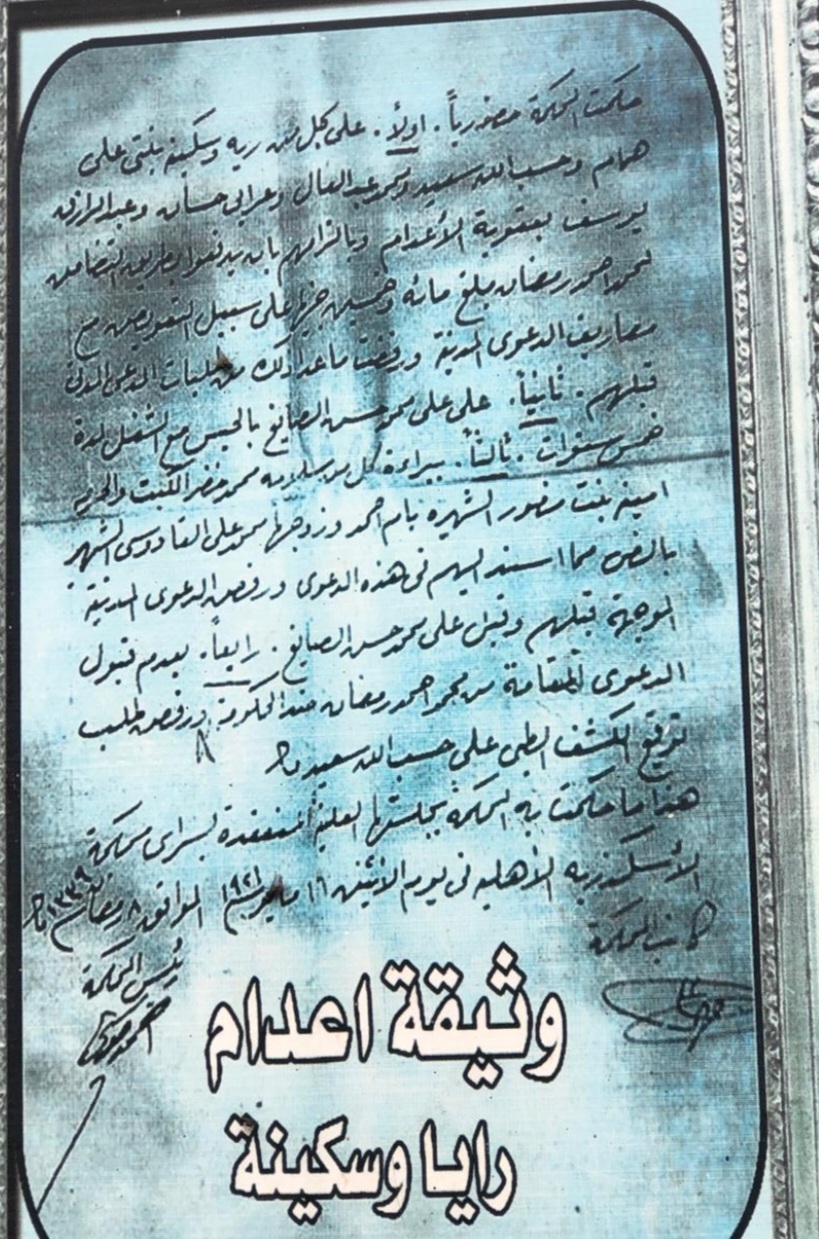 حكمت المحكمة حضورياً. اولاً. على كل من ريه وسكينه بنتى على
همام وحسب الله سعيد ومحمد عبد العال وعرابى حسان وعبد الرازق
يوسف بعقوبة الأعدام وبالزامهم بان يدفعوا بطريق التضامن
لمحمد احمد رمضان مبلغ مائه وخمسين جنيها على سبيل التعويض مع
مصاريف الدعوى المدنية ورفضت ماعدا ذلك من طلبات المدعى المدنى
قبلهم. ثانياً. على على محمد حسن الصايغ بالحبس مع الشغل لمدة
خمس سنوات. ثالثاً. ببراءة كل من سلامه محمد خضر الكبت والحرمه
امينه بنت منصور الشهيره بام احمد وزوجها محمد على القادوسى الشهير
بالنص مما اسند اليهم فى هذه الدعوى ورفض الدعوى المدنية
الموجهة قبلهم وقبل على محمد حسن الصايغ. رابعاً. بعدم قبول
الدعوى المقامة من محمد احمد رمضان ضد الحكومة ورفض طلب
توقيع الكشف الطبى على حسب الله سعيد
هذا ما حكمت به المحكمة بجلستها العلنية المنعقدة بسراى محكمة
الأسكندريه الأهليه فى يوم الاثنين ١٦ مايو سنة ١٩٢١ الموافق ٨ رمضان ١٣٣٩
كاتب المحكمة
رئيس المحكمة
وثيقة اعدام
رايا وسكينة